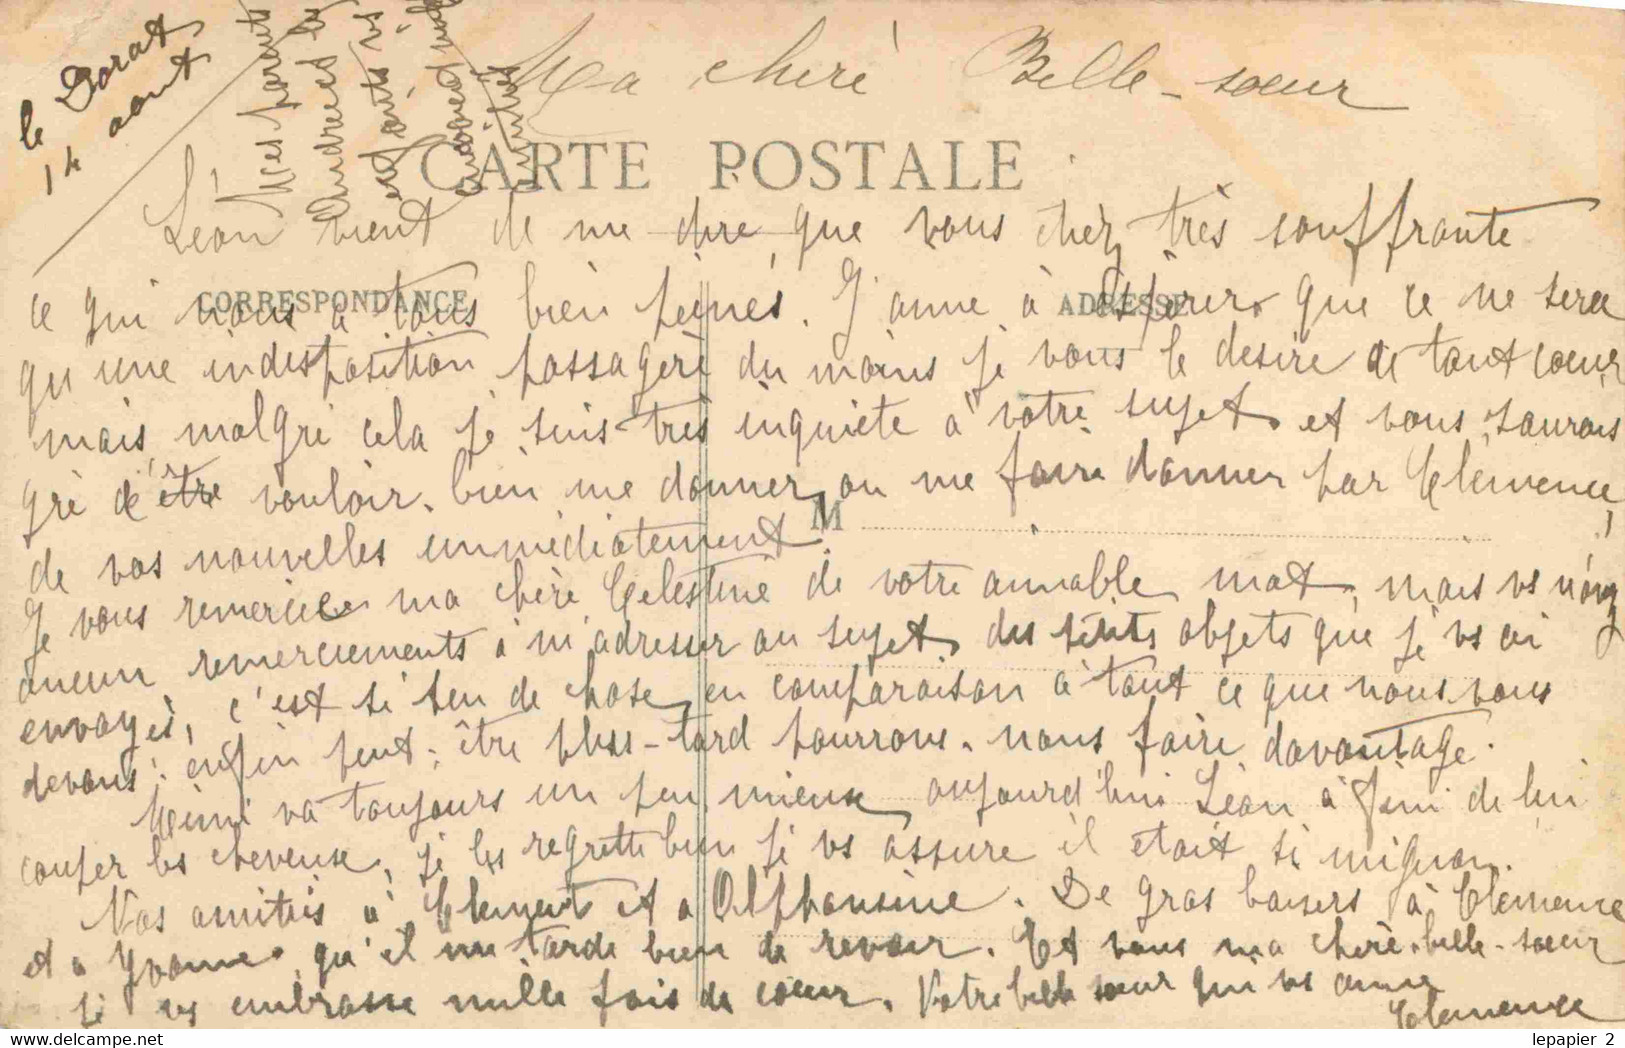 le Dorat
14 aout
Mes parents
Andrées les
enfants vs
envoient mille
amitiés
Ma chère Belle-sœur
CARTE POSTALE
Léon vient de me dire, que vous étiez très souffrante
CORRESPONDANCE
ADRESSE
ce qui nous a tous bien peinés. J'aime à espérer que ce ne sera
qu'une indisposition passagère du moins je vous le desire de tout cœur
mais, malgré cela je suis très inquiète à votre sujet, et vous saurais
gré d'être vouloir bien me donner, ou me faire donner par Clémence,
M
de vos nouvelles immédiatement.
Je vous remercie ma chère Celestine de votre aimable mot, mais vs n'avez
aucun remerciements à m'adresser au sujet des petits objets que je vs ai
envoyés, c'est si peu de chose, en comparaison à tout ce que nous vous
devons. enfin peut-être plus-tard pourrons-nous faire davantage.
Mimi va toujours un peu mieux, aujourd'hui Léon à fini de lui
couper les cheveux, je les regrette bien je vs assure il était si mignon.
Nos amitiés à Clement et a Alphonsine. De gros baisers à Clemence
et a Yvonne qu'il me tarde bien de revoir. Et vous ma chère belle-sœur
je vs embrasse mille fois de cœur. Votre belle sœur qui vs aime
Clemence
lepapier_2